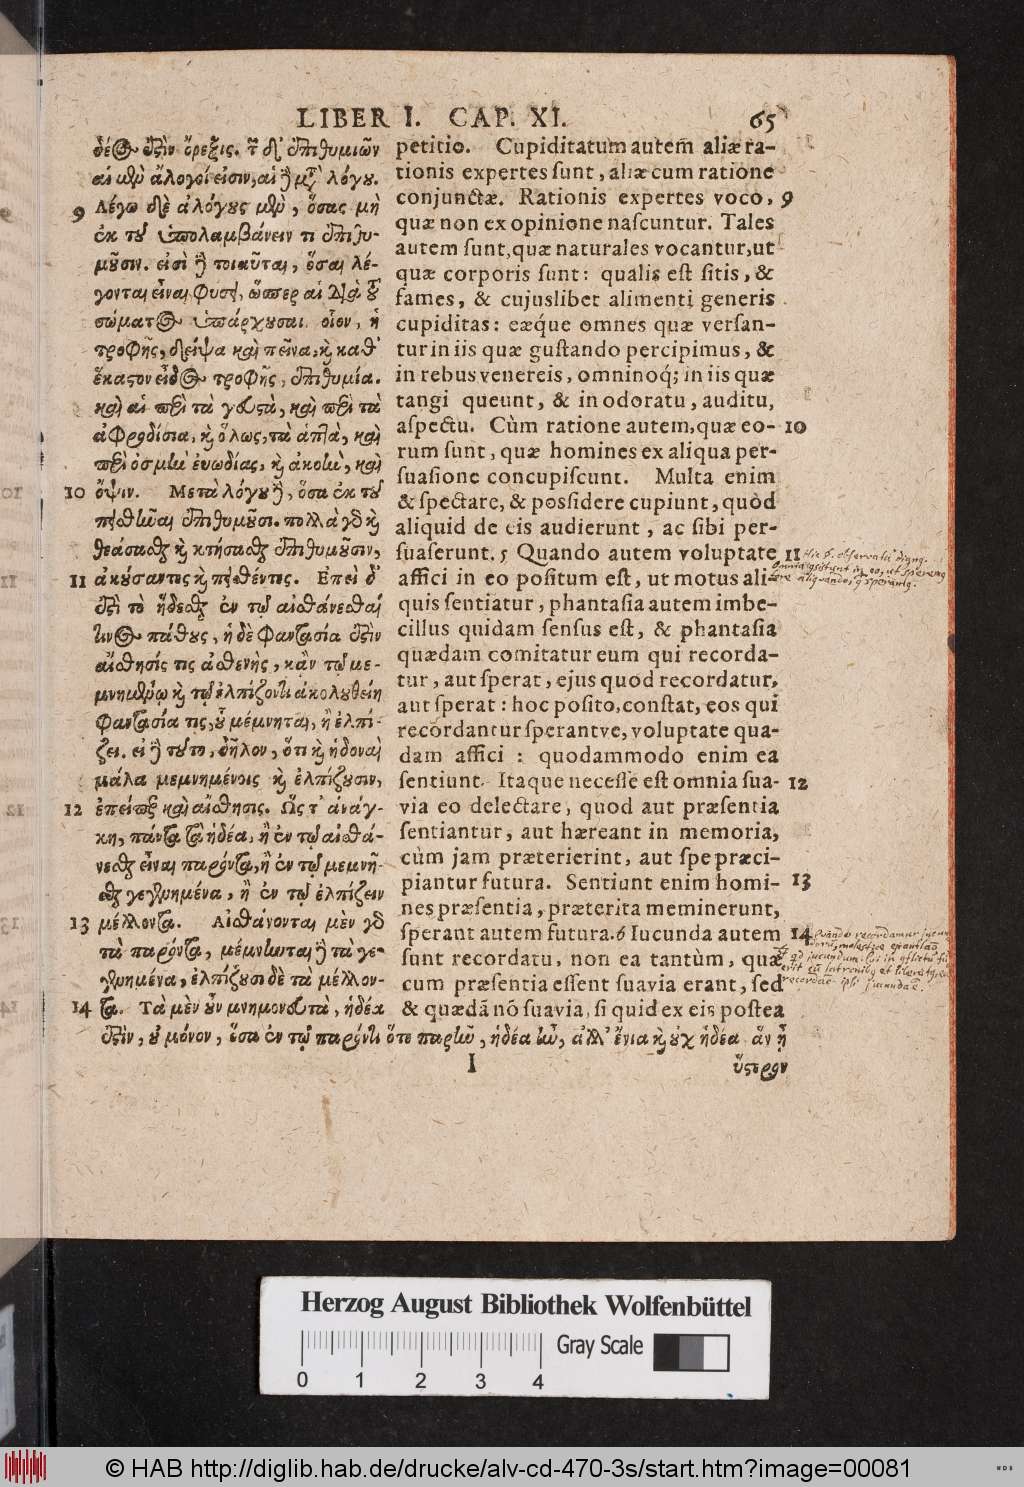 LIBER I. CAP. XI. 65
δέος ἐστὶν ὄρεξις. τῶν δ' ἐπιθυμιῶν
αἱ μὲν ἄλογοί εἰσιν, αἱ δὲ μετὰ λόγου.
9 Λέγω δὲ ἀλόγους μὲν, ὅσας μὴ
ἐκ τοῦ ὑπολαμβάνειν τι ἐπιθυ-
μοῦσιν. εἰσὶ δὲ τοιαῦται, ὅσαι λέ-
γονται εἶναι φύσει, ὥσπερ αἱ διὰ τοῦ
σώματος ὑπάρχουσαι. οἷον, ἡ
τροφῆς, δείψα καὶ πεῖνα, καὶ καθ'
ἕκαστον εἶδος τροφῆς, ἐπιθυμία.
καὶ αἱ περὶ τὰ γευστὰ, καὶ περὶ τὰ
ἀφροδίσια, καὶ ὅλως, τὰ ἁπτὰ, καὶ
περὶ ὀσμὴν εὐωδίας, καὶ ἀκοὴν, καὶ
10 ὄψιν. Μετὰ λόγου δὲ, ὅσα ἐκ τοῦ
πεισθῆναι ἐπιθυμοῦσι. πολλὰ γὰρ καὶ
θεάσασθαι καὶ κτήσασθαι ἐπιθυμοῦσιν,
11 ἀκούσαντες καὶ πεισθέντες. Ἐπεὶ δ'
ἐστὶ τὸ ἥδεσθαι ἐν τῷ αἰσθάνεσθαί
τινος πάθους, ἡ δὲ φαντασία ἐστὶν
αἴσθησίς τις ἀσθενὴς, κἂν τῷ με-
μνημένῳ καὶ τῷ ἐλπίζοντι ἀκολουθείη
φαντασία τις, οὗ μέμνηται, ἢ ἐλπί-
ζει. εἰ δὲ τοῦτο, δῆλον, ὅτι καὶ ἡδοναὶ
μάλα μεμνημένοις καὶ ἐλπίζουσιν,
12 ἐπείπερ καὶ αἴσθησις. Ὥς τ' ἀνάγ-
κη, πάντα τὰ ἡδέα, ἢ ἐν τῷ αἰσθά-
νεσθαι εἶναι παρόντα, ἢ ἐν τῷ μεμνῆ-
σθαι γεγενημένα, ἢ ἐν τῷ ἐλπίζειν
13 μέλλοντα. Αἰσθάνονται μὲν γὰρ
τὰ παρόντα, μέμνηνται δὲ τὰ γε-
γενημένα, ἐλπίζουσι δὲ τὰ μέλλον-
14 τα. Τὰ μὲν οὖν μνημονευτὰ, ἡδέα
ἐστὶν, οὐ μόνον, ὅσα ἐν τῷ παρόντι ὅτε παρῆν, ἡδέα ἦν, ἀλλ' ἔνια καὶ οὐχ ἡδέα ἂν ᾖ
petitio. Cupiditatum autem̄ aliæ ra-
tionis expertes sunt, aliæ cum ratione
conjunctæ. Rationis expertes voco, 9
quæ non ex opinione nascuntur. Tales
autem sunt, quæ naturales vocantur, ut
quæ corporis sunt: qualis est sitis, &
fames, & cujuslibet alimenti generis
cupiditas: eæq́ue omnes quæ versan-
tur in iis quæ gustando percipimus, &
in rebus venereis, omninoq́; in iis quæ
tangi queunt, & in odoratu, auditu,
aspectu. Cùm ratione autem, quæ eo- 10
rum sunt, quæ homines ex aliqua per-
suasione concupiscunt. Multa enim
& spectare, & possidere cupiunt, quòd
aliquid de eis audierunt, ac sibi per-
suaserunt. 5 Quando autem voluptate 11
affici in eo positum est, ut motus ali-
quis sentiatur, phantasia autem imbe-
cillus quidam sensus est, & phantasia
quædam comitatur eum qui recorda-
tur, aut sperat, ejus quod recordatur,
aut sperat: hoc posito, constat, eos qui
recordantur sperantve, voluptate qua-
dam affici: quodammodo enim ea
sentiunt. Itaque necesse est omnia sua- 12
via eo delectare, quod aut præsentia
sentiantur, aut hæreant in memoria,
cùm jam præterierint, aut spe præci-
piantur futura. Sentiunt enim homi- 13
nes præsentia, præterita meminerunt,
sperant autem futura. 6 Iucunda autem 14
sunt recordatu, non ea tantùm, quæ
cum præsentia essent suavia erant, sed
& quædā nō suavia, si quid ex eis postea
I ὕστερον
Herzog August Bibliothek Wolfenbüttel
0 1 2 3 4 Gray Scale
© HAB http://diglib.hab.de/drucke/alv-cd-470-3s/start.htm?image=00081